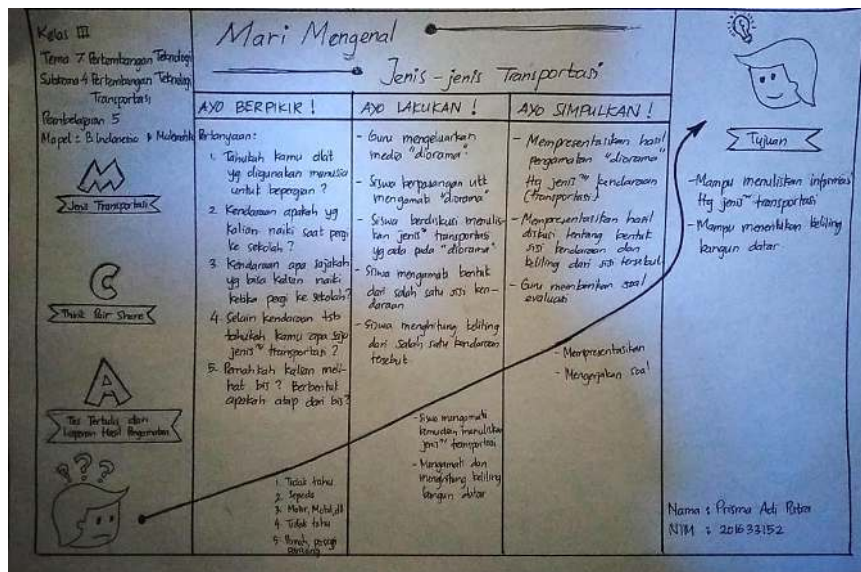 Kelas III
Tema 7 Perkembangan Teknologi
Subtema 4 Perkembangan Teknologi
Transportasi
Pembelajaran 5
Mapel : B. Indonesia & Matematika
M
Jenis Transportasi
C
Think Pair Share
A
Tes Tertulis dan
Laporan Hasil Pengamatan
? ? ?
Mari Mengenal
Jenis-jenis Transportasi
AYO BERPIKIR !
Pertanyaan :
1. Tahukah kamu alat
yg digunakan manusia
untuk bepergian ?
2. Kendaraan apakah yg
kalian naiki saat pergi
ke sekolah ?
3. Kendaraan apa sajakah
yg bisa kalian naiki
ketika pergi ke sekolah?
4. Selain kendaraan tsb
tahukah kamu apa saja
jenis" transportasi ?
5. Pernahkah kalian meli-
hat bis ? Berbentuk
apakah atap dari bis?
1. Tidak tahu
2. Sepeda
3. Motor, Mobil, dll
4. Tidak tahu
5. Pernah, persegi
panjang
AYO LAKUKAN !
- Guru mengeluarkan
media "diorama".
- Siswa berpasangan utk
mengamati "diorama"
- Siswa berdiskusi menulis-
kan jenis" transportasi
yg ada pada "diorama"
- Siswa mengamati bentuk
dari salah satu sisi ken-
daraan
- Siswa menghitung keliling
dari salah satu kendaraan
tersebut
- Siswa mengamati
kemudian menuliskan
jenis" transportasi
- Mengamati dan
menghitung keliling
bangun datar
AYO SIMPULKAN !
- Mempresentasikan hasil
pengamatan "diorama"
ttg jenis" kendaraan
(transportasi)
- Mempresentasikan hasil
diskusi tentang bentuk
sisi kendaraan dan
keliling dari sisi tersebut
- Guru memberikan soal
evaluasi
- Mempresentasikan
- Mengerjakan soal
Tujuan
- Mampu menuliskan informasi
ttg jenis" transportasi
- Mampu menentukan keliling
bangun datar
Nama : Prisma Adi Putra
NIM : 201633152